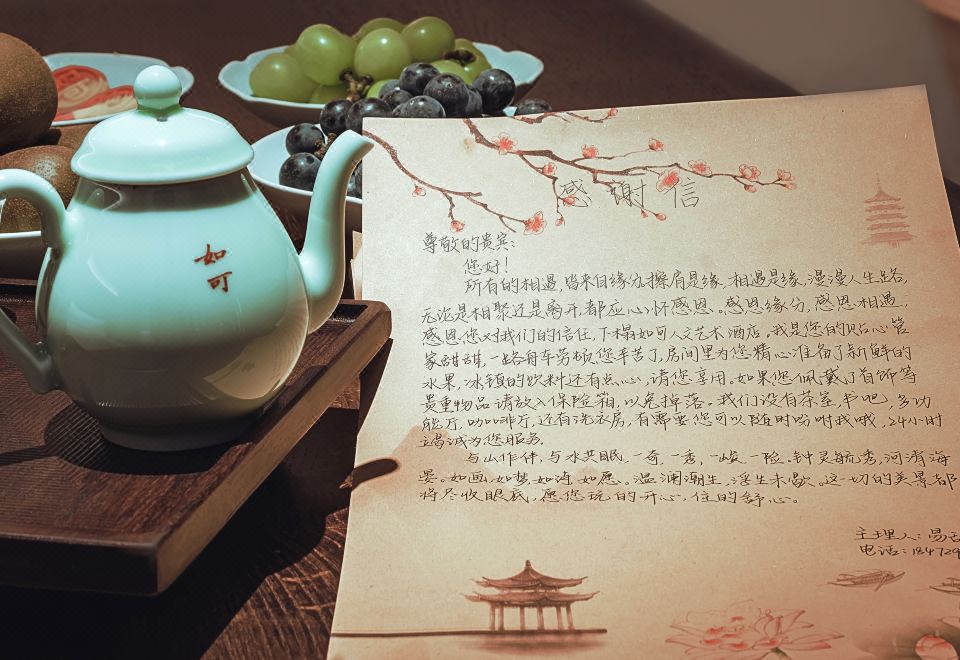 如
可
感谢信
尊敬的贵宾:
您好!
所有的相遇,皆来自缘分,擦肩是缘,相遇是缘,漫漫人生路,
无论是相聚还是离开,都应心怀感恩。感恩缘分,感恩相遇,
感恩您对我们的信任,下榻如可人文艺术酒店,我是您的贴心管
家甜甜,一路舟车劳顿您辛苦了,房间里为您精心准备了新鲜的
水果,冰镇的饮料还有点心,请您享用。如果您佩戴了首饰等
贵重物品请放入保险箱,以免掉落。我们设有茶室,书吧,多功
能厅,咖啡厅,还有洗衣房,有需要您可以随时吩咐我哦,24小时
竭诚为您服务。
与山作伴,与水共眠,一奇,一秀,一峻,一险,钟灵毓秀,河清海
晏。如画,如梦,如诗,如愿。温澜潮生,浮生未歇。这一切的美景都
将尽收眼底,愿您玩的开心,住的舒心。
主理人:易
电话:184724